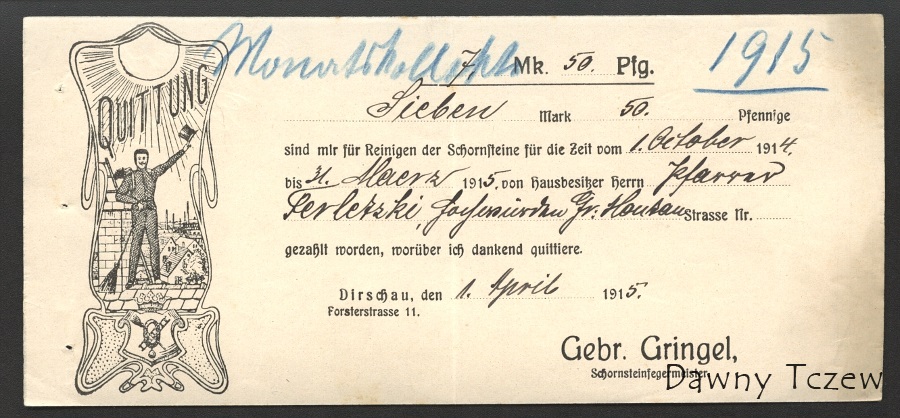 QUITTUNG
1915
7 Mk. 50. Pfg.
Sieben Mark 50. Pfennige
sind mir für Reinigen der Schornsteine für die Zeit vom 1. October 1914.
bis 31. Maerz 1915, von Hausbesitzer Herrn Pfarrer
Ferletzki, Hochwürden Gr: Strasse Nr.
gezahlt worden, worüber ich dankend quittiere.
Dirschau, den 1. April 1915.
Forsterstrasse 11.
Gebr. Gringel,
Schornsteinfegermeister.
Dawny Tczew